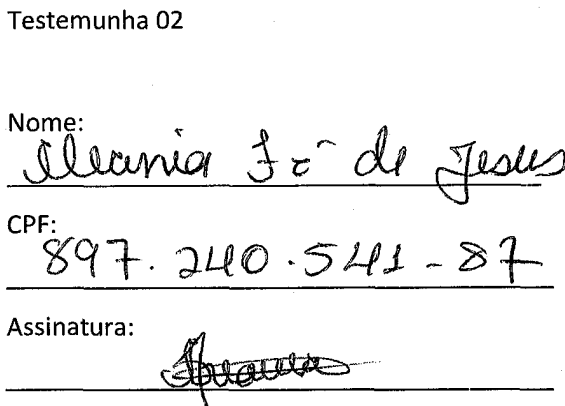 Testemunha 02
Nome:
de Jesus
CPF:
897.240.541-87
Assinatura: